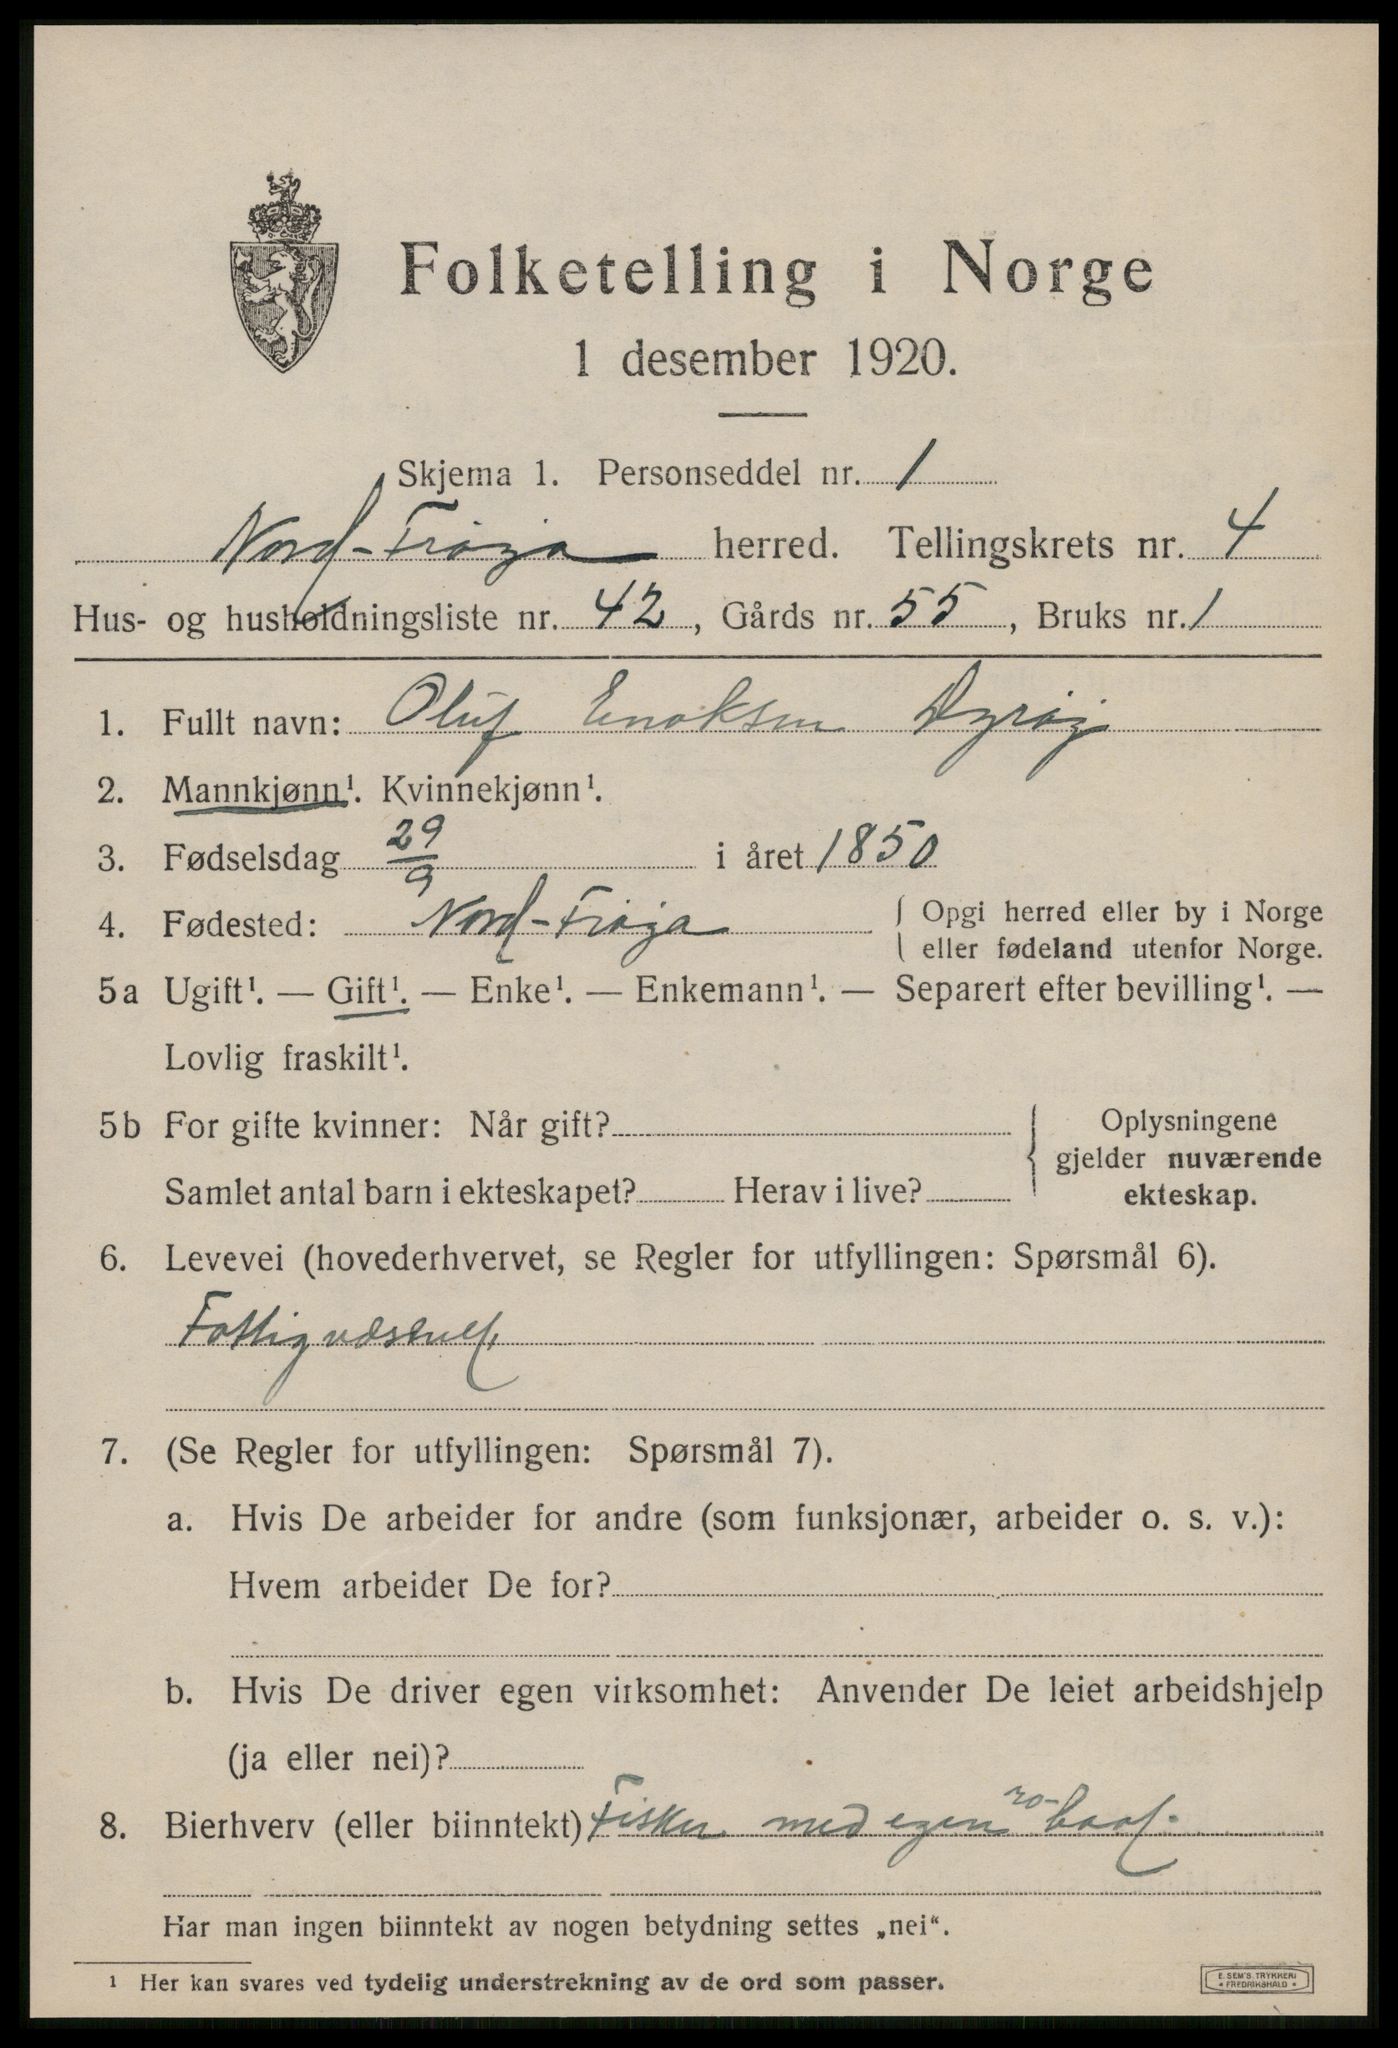 Folketelling i Norge
1 desember 1920.
Skjema 1. Personseddel nr. 1
Nord-Frøya herred. Tellingskrets nr. 4
Hus- og husholdningsliste nr. 42, Gårds nr. 55, Bruks nr. 1
1. Fullt navn: Oluf Enoksen Dyrøy
2. Mannkjønn¹. Kvinnekjønn¹.
3. Fødselsdag 29/9 i året 1850
4. Fødested: Nord-Frøya { Opgi herred eller by i Norge
eller fødeland utenfor Norge.
5a Ugift¹. — Gift¹. — Enke¹. — Enkemann¹. — Separert efter bevilling¹. —
Lovlig fraskilt¹.
5b For gifte kvinner: Når gift?
Samlet antal barn i ekteskapet? Herav i live?
{ Oplysningene
gjelder nuværende
ekteskap.
6. Levevei (hovederhvervet, se Regler for utfyllingen: Spørsmål 6).
Fattigunderst.
7. (Se Regler for utfyllingen: Spørsmål 7).
a. Hvis De arbeider for andre (som funksjonær, arbeider o. s. v.):
Hvem arbeider De for?
b. Hvis De driver egen virksomhet: Anvender De leiet arbeidshjelp
(ja eller nei)?
8. Bierhverv (eller biinntekt) Fisker med egen ro-baat.
Har man ingen biinntekt av nogen betydning settes „nei“.
¹ Her kan svares ved tydelig understrekning av de ord som passer.
E. SEM'S TRYKKERI
• FREDRIKSHALD •